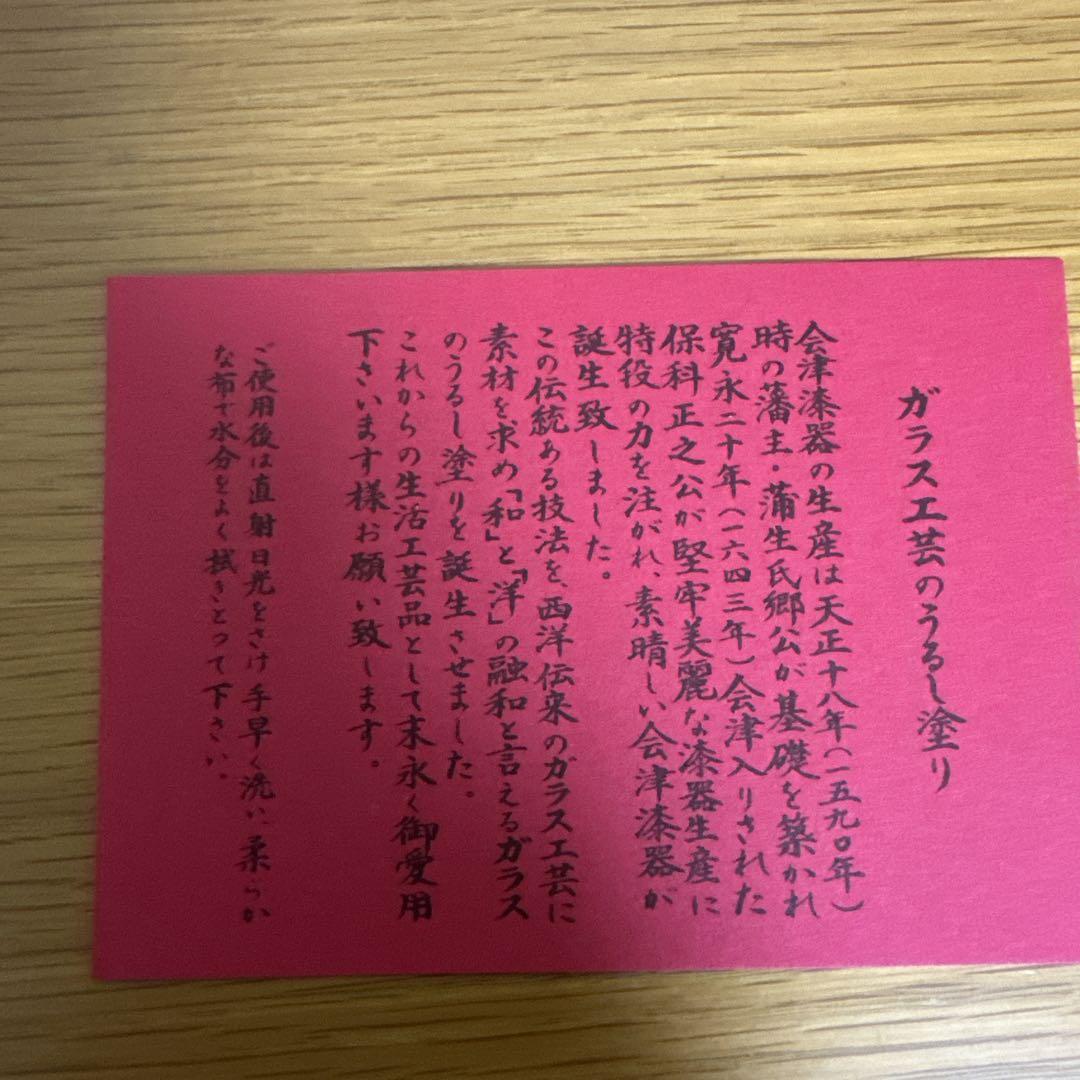 ガラス工芸のうるし塗り
会津漆器の生産は天正十八年(一五九〇年)
時の藩主・蒲生氏郷公が基礎を築かれ
寛永二十年(一六四三年)会津入りされた
保科正之公が堅牢美麗な漆器生産に
特役の力を注がれ、素晴しい会津漆器が
誕生致しました。
この伝統ある技法を、西洋伝来のガラス工芸に
素材を求め「和」と「洋」の融和と言えるガラス
のうるし塗りを誕生させました。
これからの生活工芸品として末永く御愛用
下さいます様お願い致します。
ご使用後は直射日光をさけ手早く洗い、柔らか
な布で水分をよく拭きとって下さい。